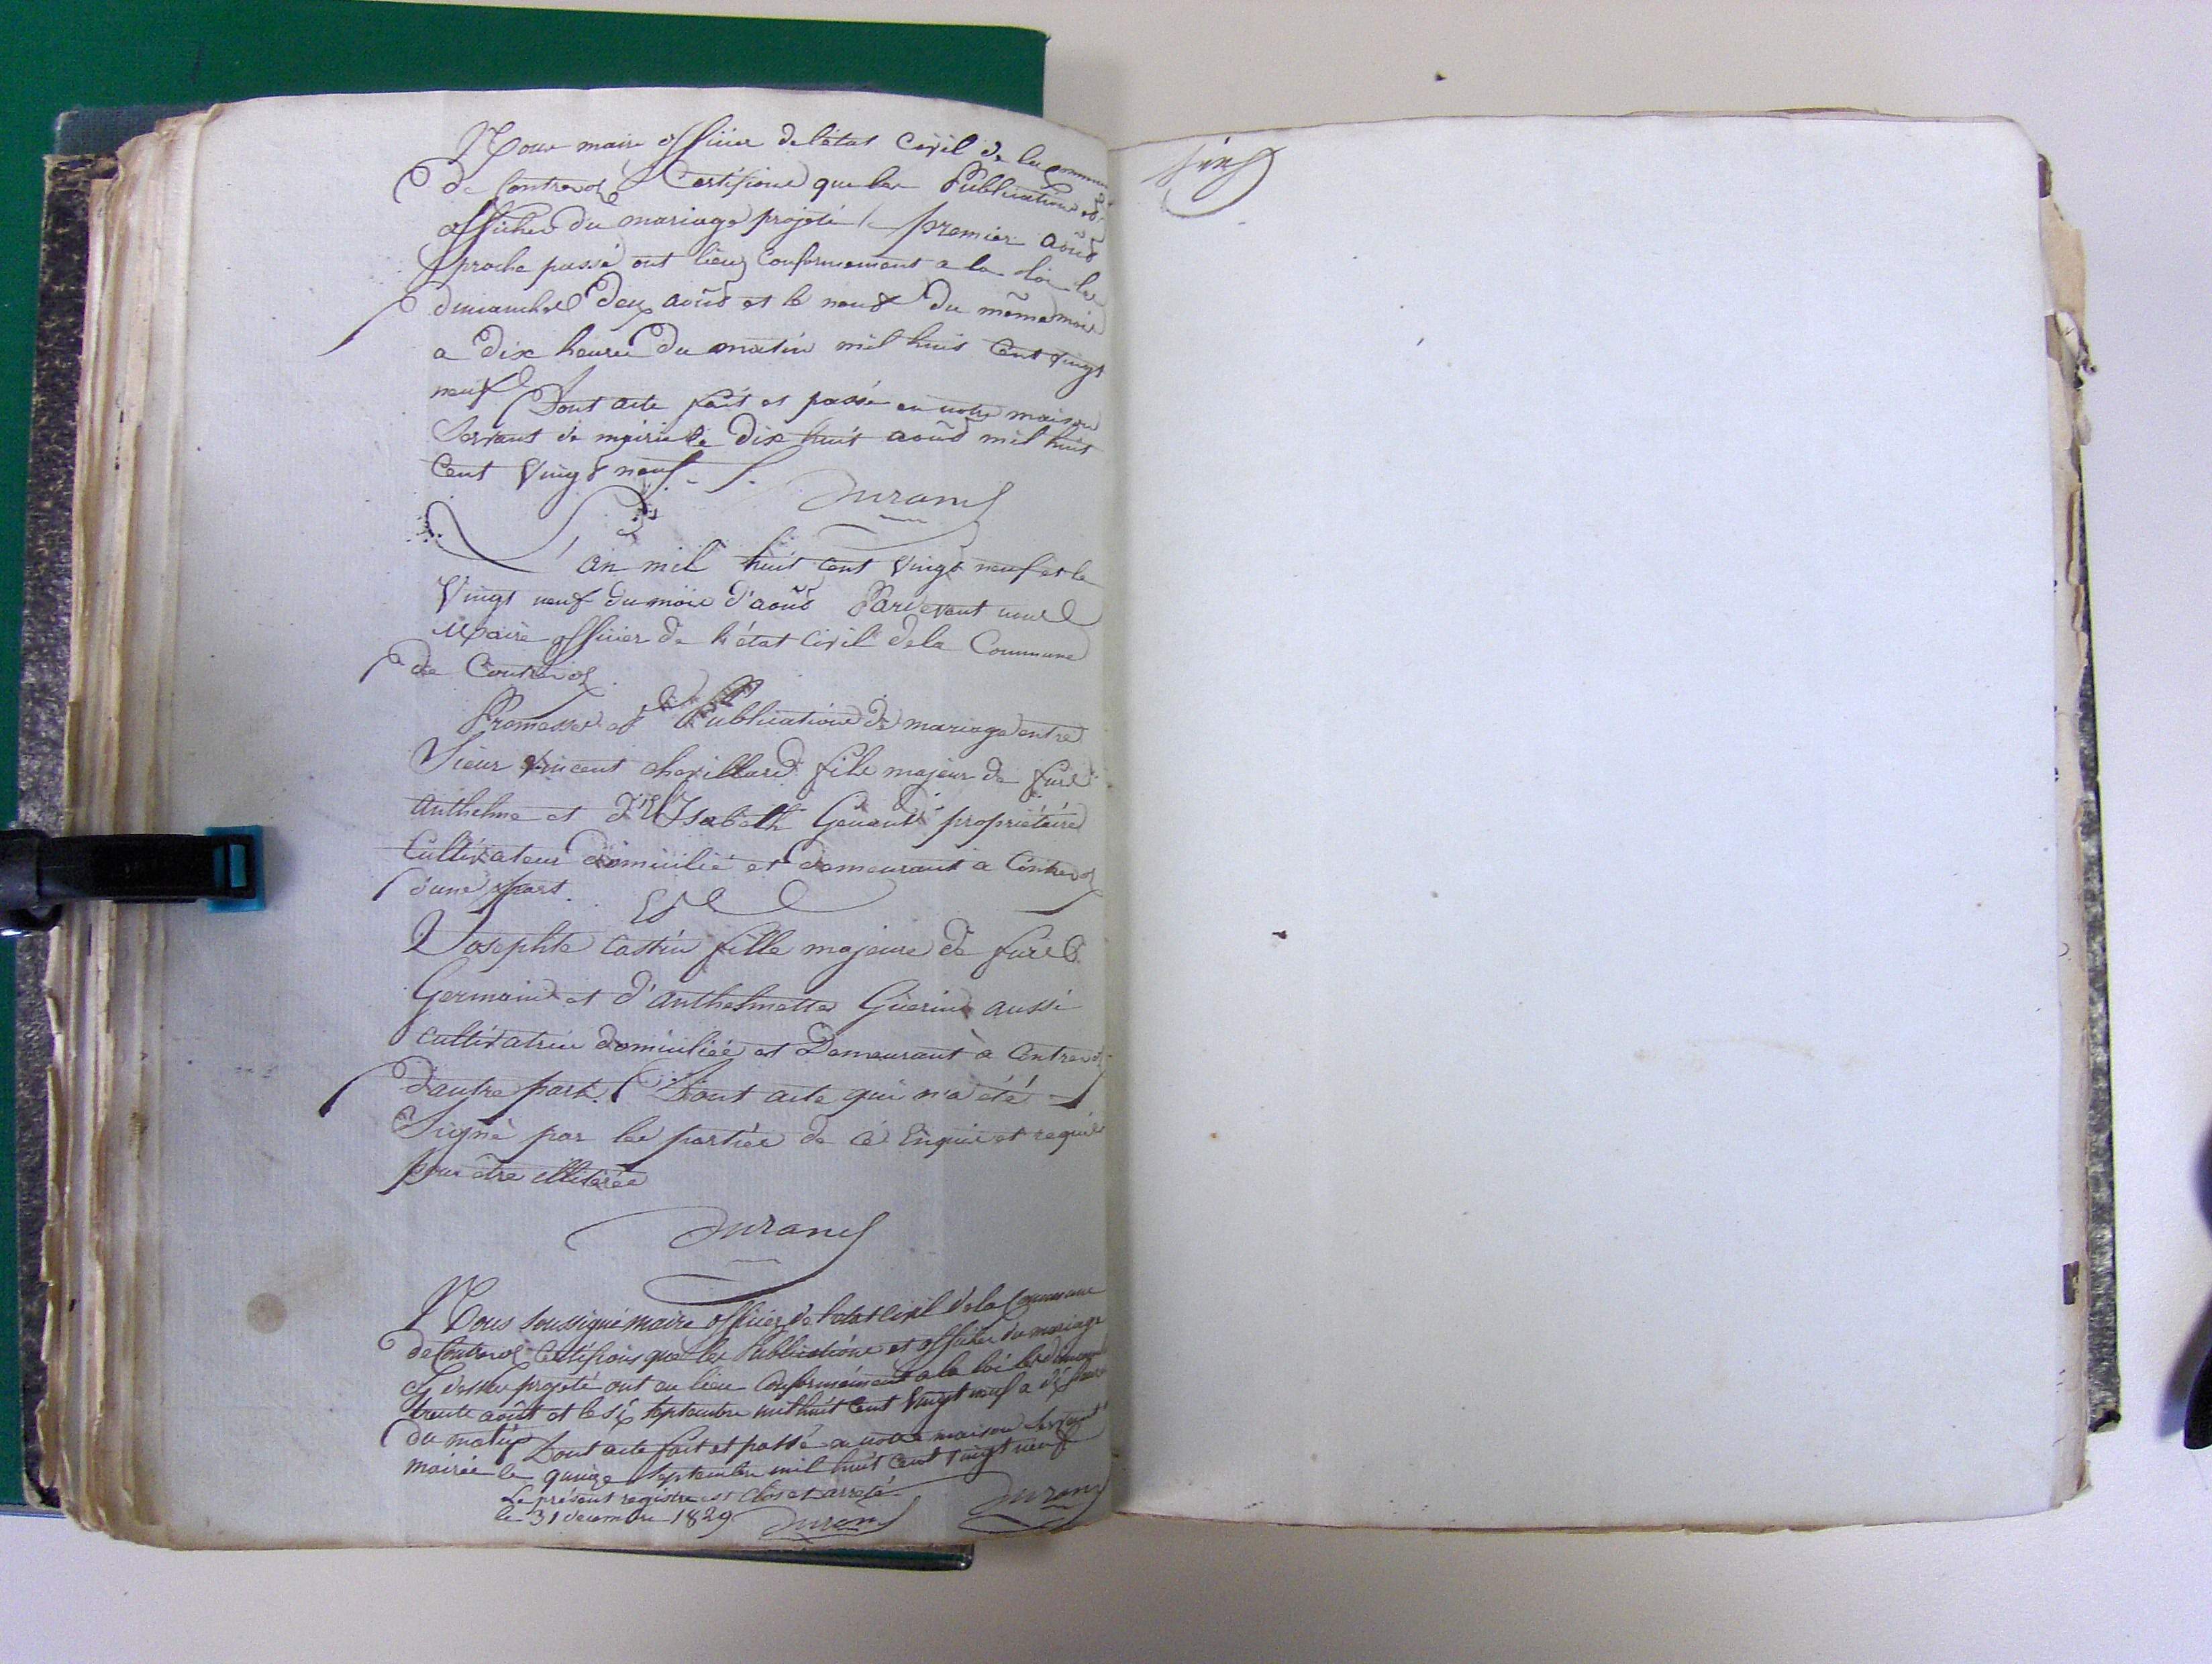 Nous maire officier de l'état Civil de la Commune
de Contrevoz Certifions que les Publications et
affiches du mariage projeté le premier août
proche passé ont lieu Conformement a la Loi les
dimanches deux août et le neuf du même mois
a dix heures du matin mil huit Cent vingt
neuf Dont acte fait et passé en notre maison
Servant de mairie le dix huit août mil huit
Cent Vingt neuf. -
Durand
L'an mil huit Cent Vingt neuf et le
Vingt neuf du mois d'août Pardevant nous
Maire officier de l'état Civil de la Commune
de Contrevoz
Promesses et Publications de mariage entre
Sieur Vincent chevillard fils majeur de furent
anthelme et d'Isabeth Genand propriétaire
Cultivateur domicilié et demeurant a Contrevoz
d'une part. Et
Josephte Castin fille majeure de furent
Germain et d'anthelmette Guerin aussi
cultivatrice domiciliée et Demeurant à Contrevoz
d'autre part. Dont acte qui n'a été
Signé par les parties de ce Enquis et requis
pour être illiterées
Durand
Nous soussigné maire officier de l'état Civil de la Commune
de Contrevoz Certifions que les Publications et affiches du mariage
cy dessus projeté ont eu lieu Conformément a la loi les dimanches
trente août et le six septembre mil huit Cent Vingt neuf a dix heures
du matin Dont acte fait et passé en notre maison servant
mairie le quinze septembre mil huit Cent vingt neuf
Durand
Le présent registre est clos et arreté
le 31 decembre 1829 Durand